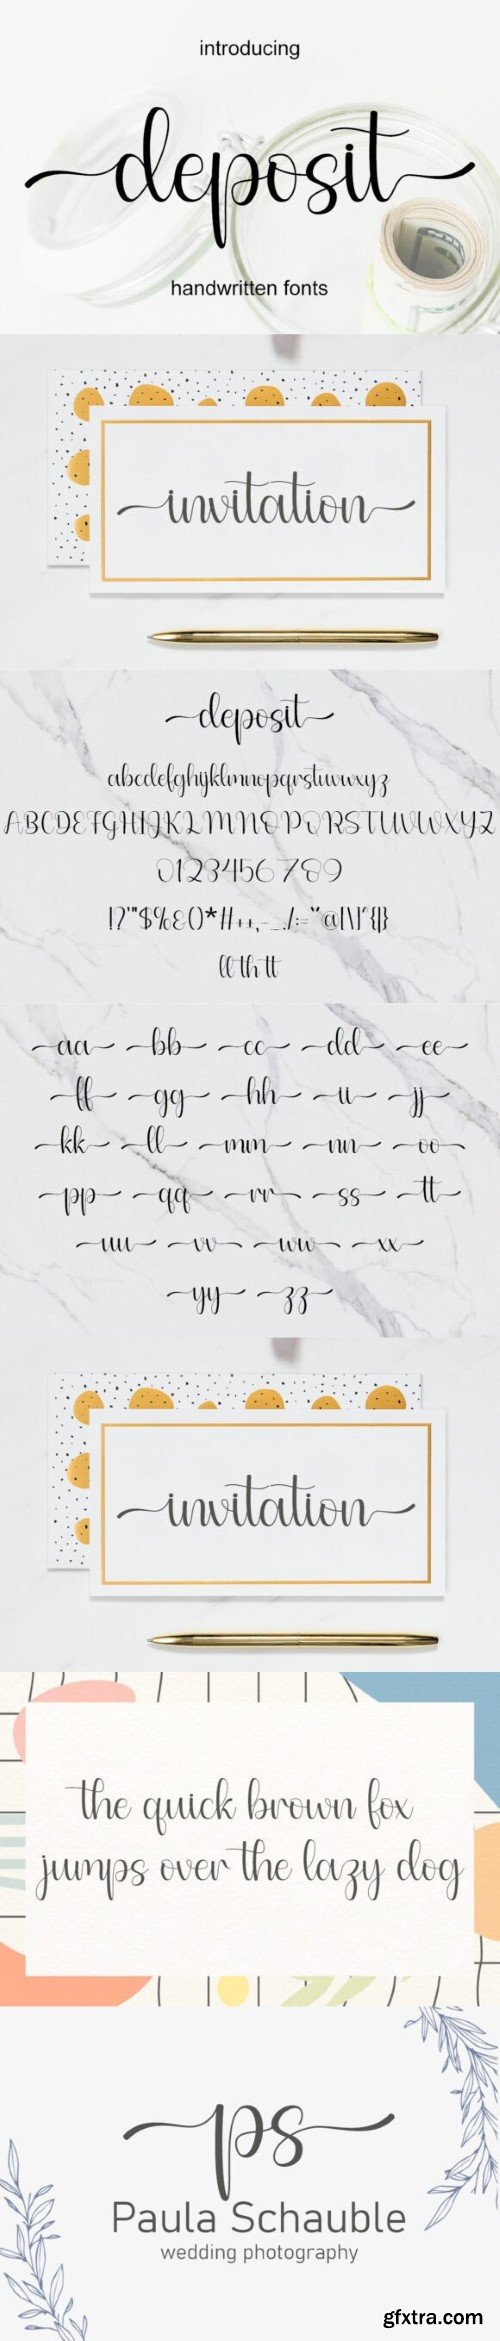 introducing
deposit
handwritten fonts
invitation
deposit
abcdefghijklmnopqrstuvwxyz
ABCDEFGHIJKLMNOPQRSTUVWXYZ
0123456789
ll th tt
aa bb cc dd ee
ff gg hh ii jj
kk ll mm nn oo
pp qq rr ss tt
uu vv ww xx
yy zz
invitation
the quick brown fox
jumps over the lazy dog
ps
Paula Schauble
wedding photography
gfxtra.com